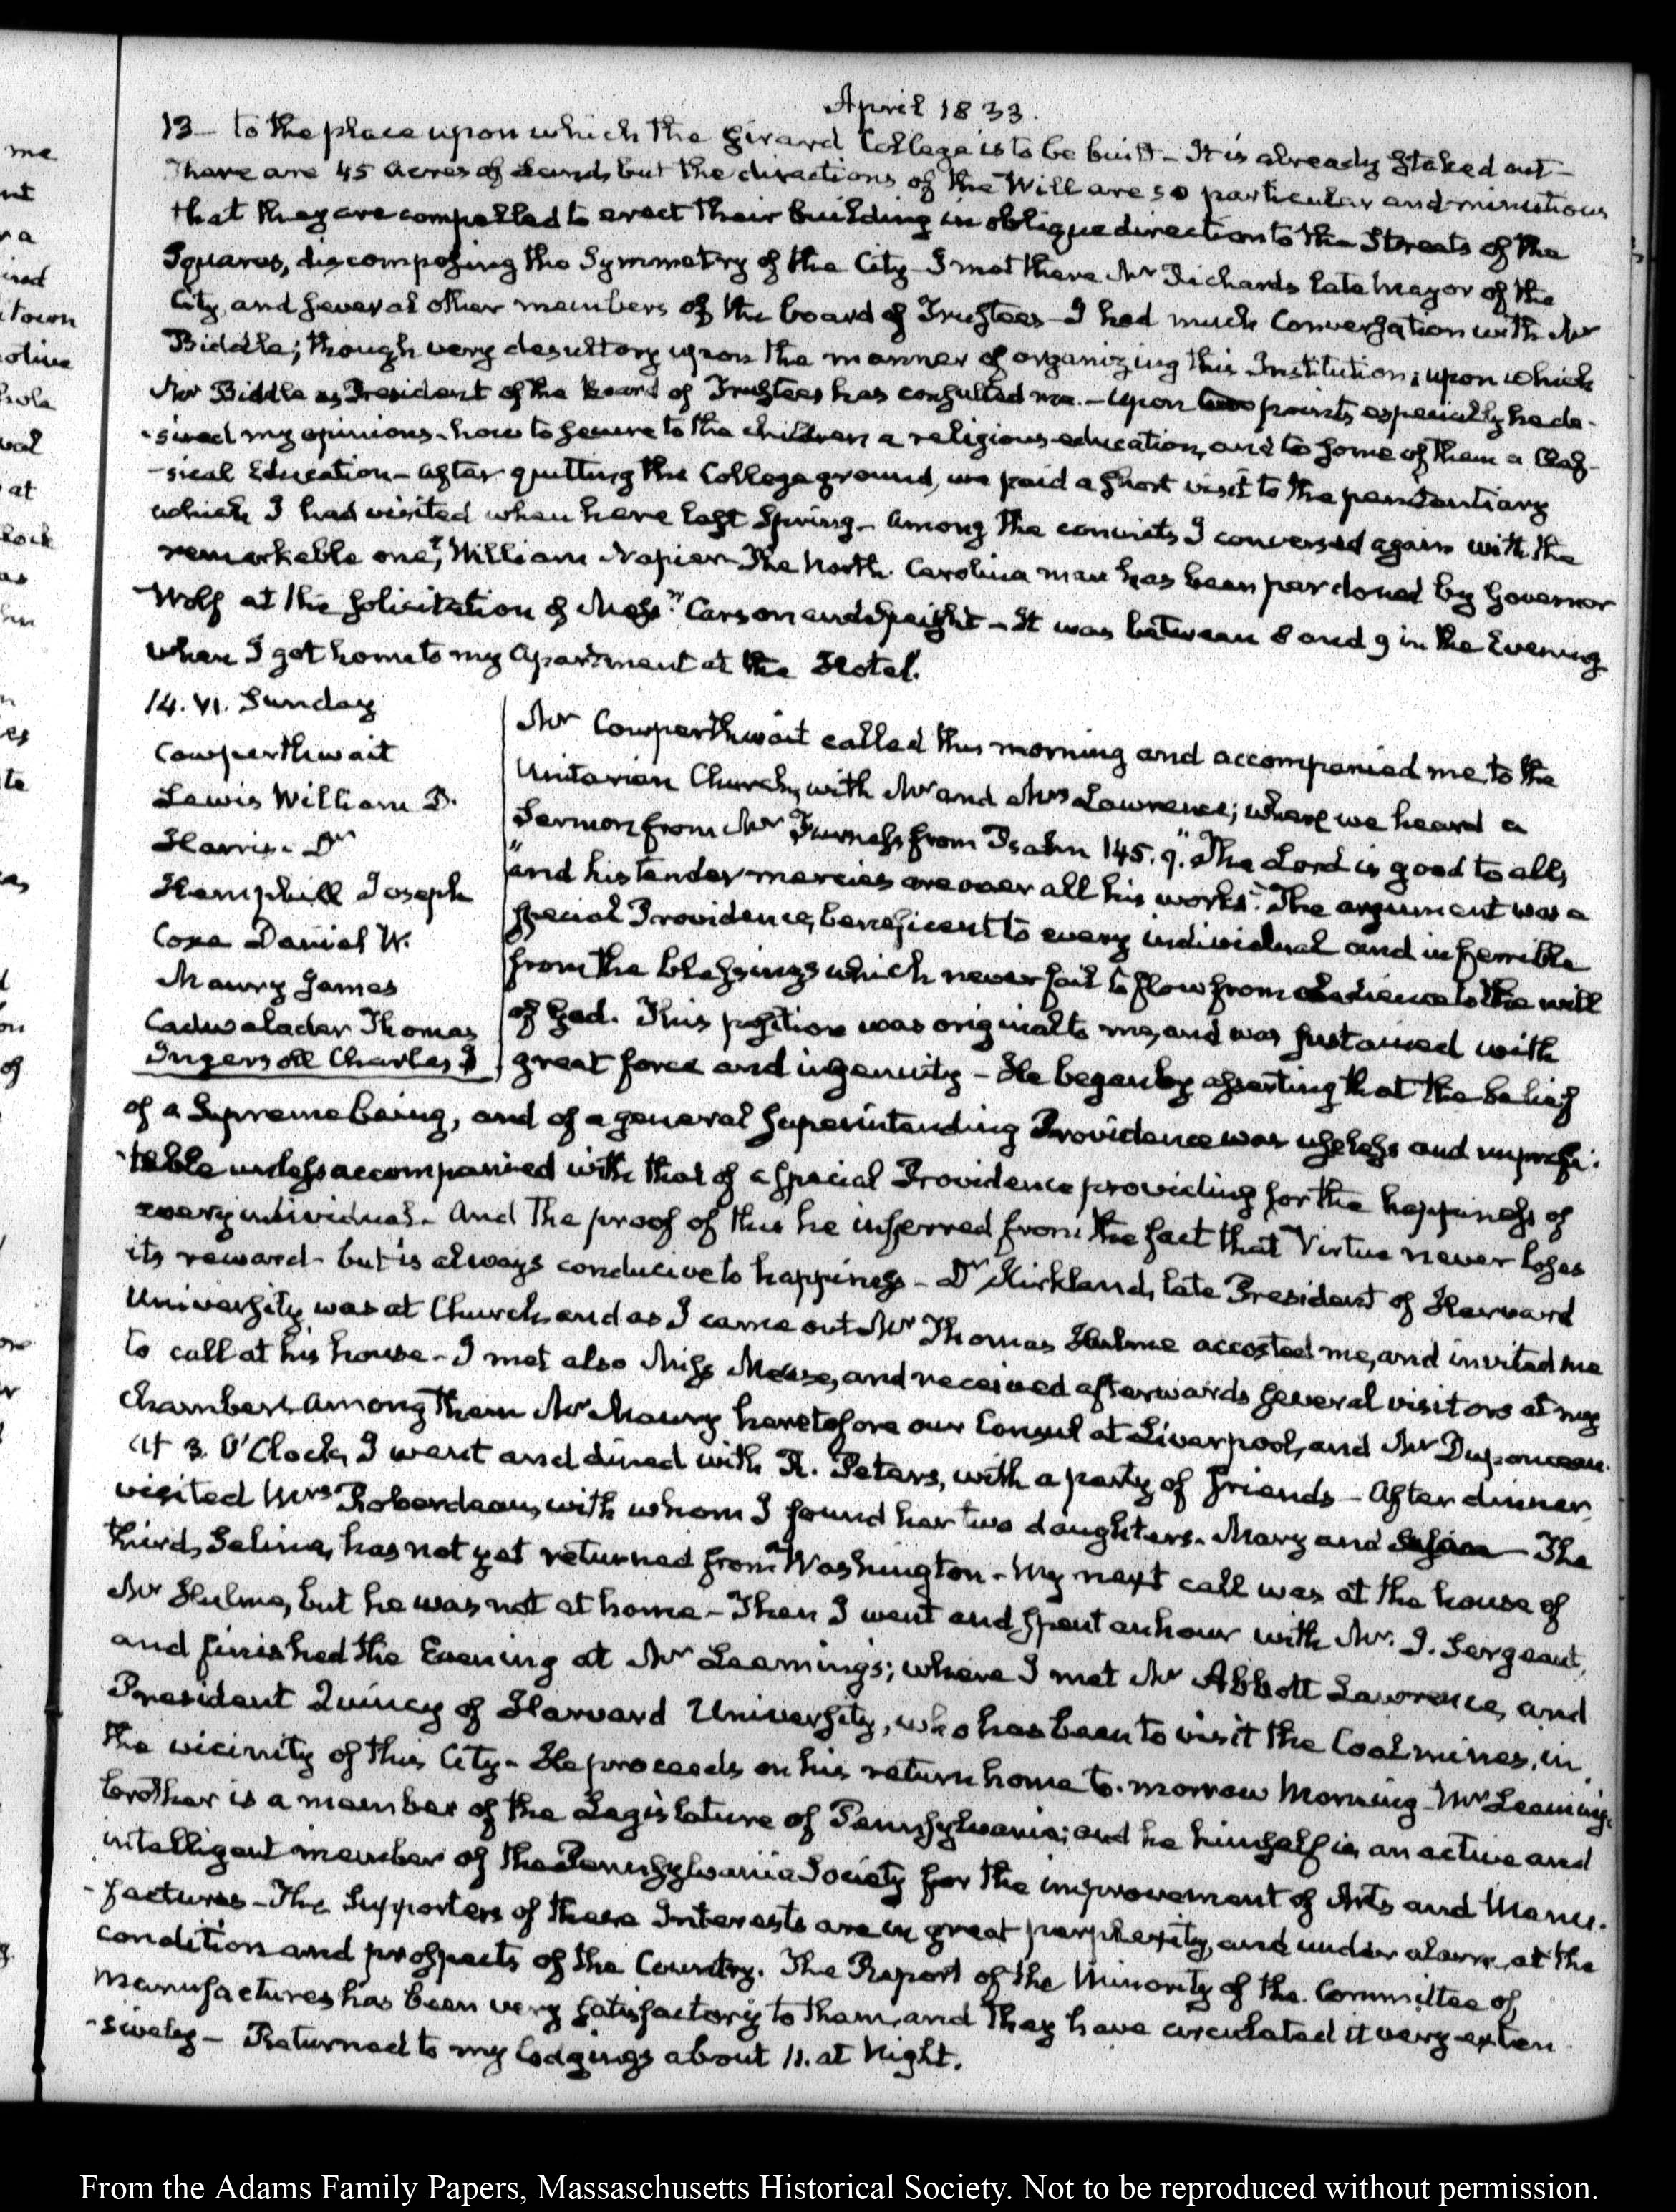 April 1833.
13 – to the place upon which the Girard College is to be built – It is already staked out –
There are 45 acres of Land, but the directions of the Will are so particular and minutious
that they are compelled to erect their building in oblique direction to the Streets of the
Squares, discomposing the Symmetry of the City – I met there Mr Richards late Mayor of the
City, and several other members of the board of Trustees – I had much Conversation with Mr
Biddle; though very desultory upon the manner of organizing this Institution; upon which
Mr Biddle as President of the Board of Trustees has consulted me. – Upon two points especially he de-
-sired my opinions – how to secure to the children a religious education, and to some of them a Clas-
-sical Education – After quitting the College ground, we paid a short visit to the penitentiary
which I had visited when here last Spring – Among the convicts I conversed again with the
remarkable one, William Napier – The North Carolina man has been pardoned by Governor
Wolf at the solicitation of Messrs Carson and Speight – It was between 8 and 9 in the Evening
when I got home to my apartment at the Hotel.
14. VI. Sunday
Cowperthwait
Lewis William D.
Harris – Dr
Hemphill Joseph
Coxe Daniel W.
Maury James
Cadwalader Thomas
Ingersoll Charles J
Mr Cowperthwait called this morning and accompanied me to the
Unitarian Church, with Mr and Mrs Lawrence; where we heard a
Sermon from Mr Furness from Psalm 145. 9. "The Lord is good to all;
"and his tender mercies are over all his works." The argument was a
special Providence, beneficent to every individual and inferrible
from the blessings which never fail to flow from obedience to the will
of God. This position was original to me, and was sustained with
great force and ingenuity – He began by asserting that the belief
of a Supreme being, and of a general Superintending Providence was useless and unprofi-
-table unless accompanied with that of a special Providence providing for the happiness of
every individual – And the proof of this he inferred from the fact that Virtue never loses
its reward – but is always conducive to happiness – Dr Kirkland, late President of Harvard
University was at Church, and as I came out Mr Thomas Hulme accosted me, and invited me
to call at his house – I met also Miss Mease, and received afterwards several visitors at my
Chambers. Among them Mr Maury heretofore our Consul at Liverpool, and Mr Duponceau.
At 3. O'Clock, I went and dined with R. Peters, with a party of friends – After dinner,
visited Mrs Roberdeau, with whom I found her two daughters. Mary and Susan – The
third, Selina, has not yet returned from Washington – My next call was at the house of
Mr Hulme, but he was not at home – Then I went and spent an hour with Mr. J. Sergeant,
and finished the Evening at Mr Leamings; where I met Mr Abbott Lawrence, and
President Quincy of Harvard University, who has been to visit the Coal mines, in
the vicinity of this City – He proceeds on his return home to-morrow Morning – Mr Leaming's
brother is a member of the Legislature of Pennsylvania; and he himself is an active and
intelligent member of the Pennsylvania Society for the improvement of Arts and Manu-
-factures – The Supporters of these Interests are in great perplexity, and under alarm, at the
condition and prospects of the Country. The Report of the Minority of the Committee of
Manufactures has been very satisfactory to them, and they have circulated it very exten
-sively – Returned to my lodgings about 11. at Night.
From the Adams Family Papers, Massachusetts Historical Society. Not to be reproduced without permission.